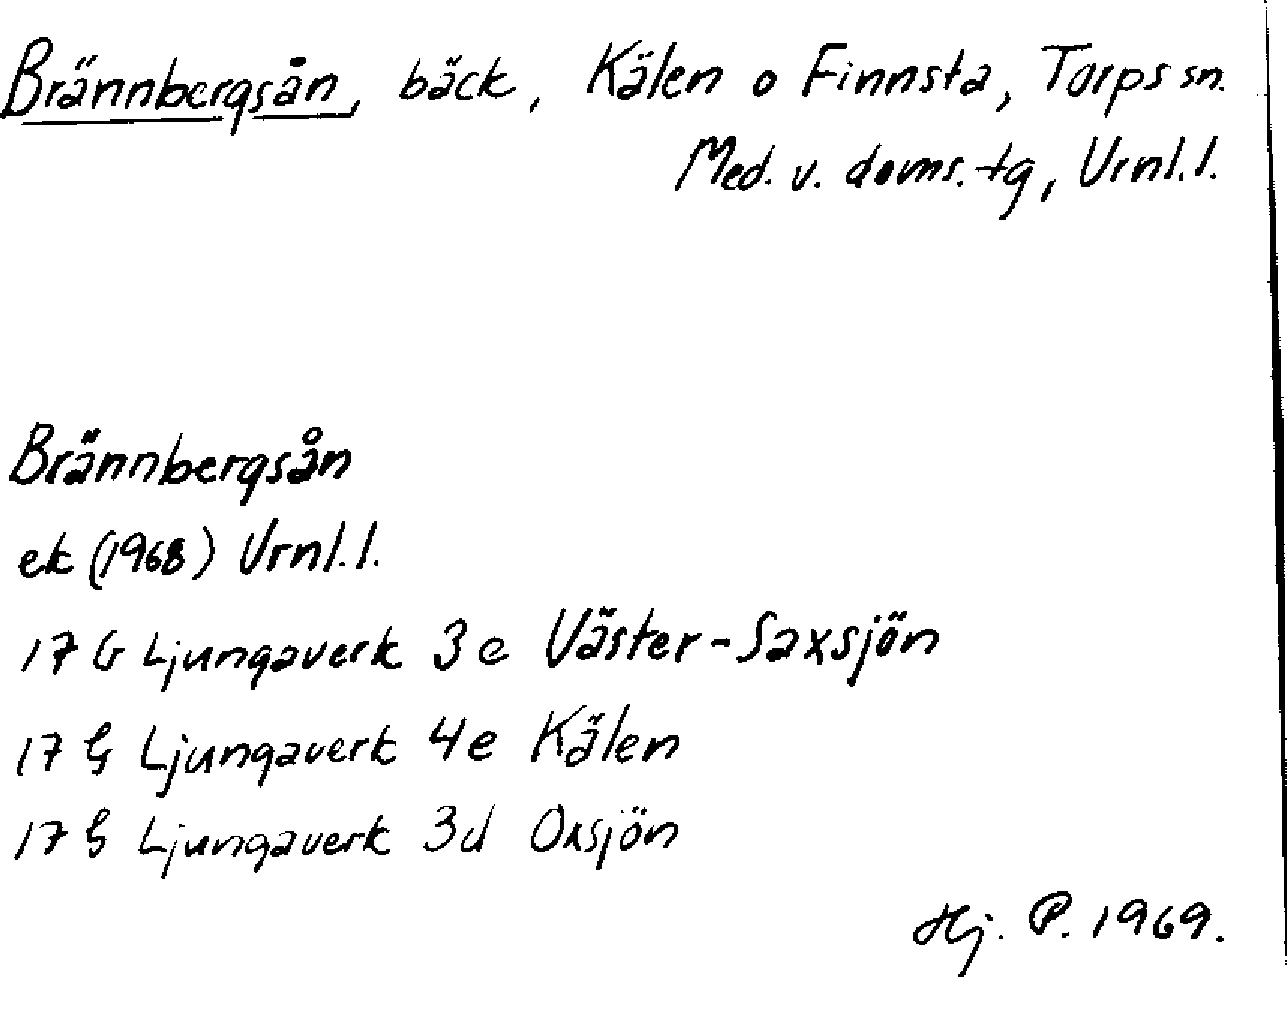 Brännbergsån, bäck, Kälen o Finnsta, Torps sn.
Med. v. doms. tg, Vrnl. l.
Brännbergsån
ek (1968) Vrnl. l.
17 G Ljungaverk 3e Väster-Saxsjön
17 G Ljungaverk 4e Kälen
17 G Ljungaverk 3d Oxsjön
Hj. P. 1969.